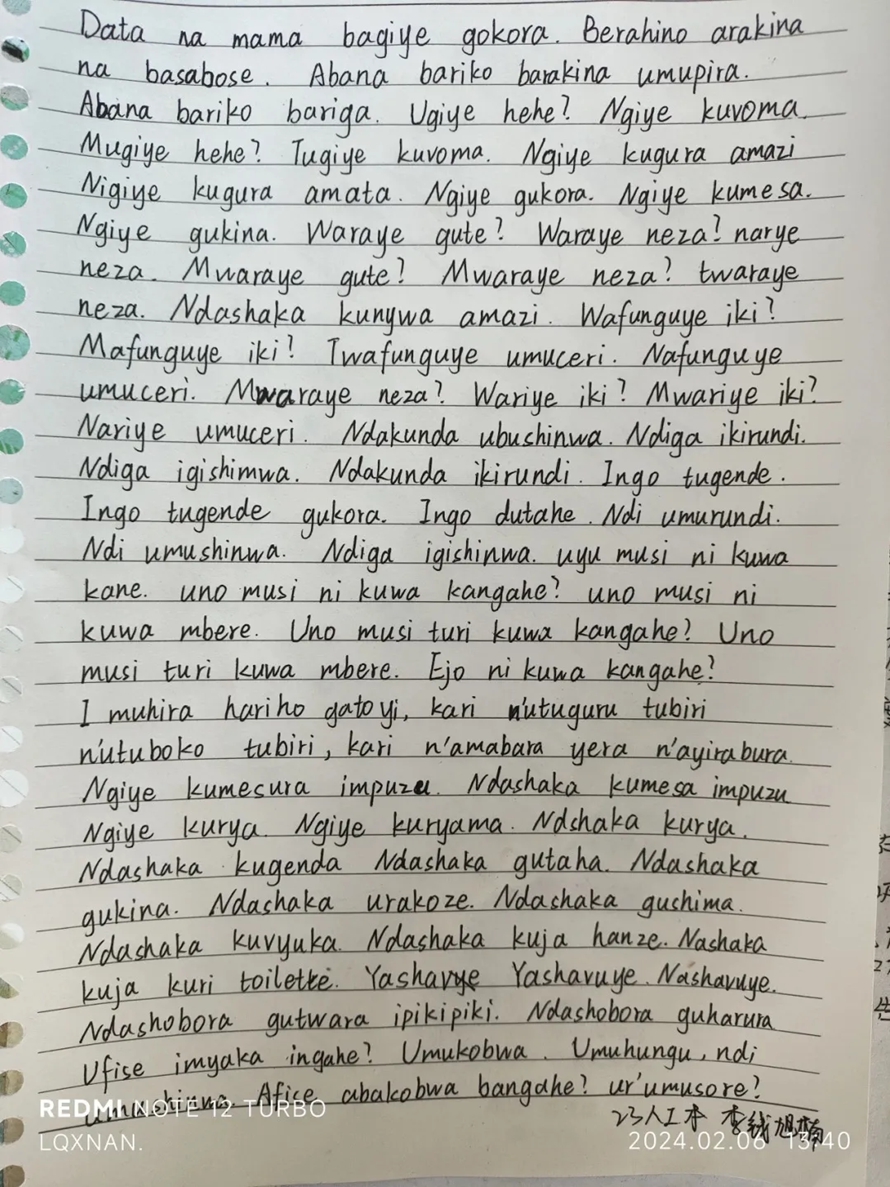 Data na mama bagiye gokora. Berahino arakina
na basabose. Abana bariko barakina umupira.
Abana bariko bariga. Ugiye hehe? Ngiye kuvoma.
Mugiye hehe? Tugiye kuvoma. Ngiye kugura amazi
Nigiye kugura amata. Ngiye gukora. Ngiye kumesa.
Ngiye gukina. Waraye gute? Waraye neza? narye
neza. Mwaraye gute? Mwaraye neza? twaraye
neza. Ndashaka kunywa amazi. Wafunguye iki?
Mafunguye iki? Twafunguye umuceri. Nafunguye
umuceri. Mwaraye neza? Wariye iki? Mwariye iki?
Nariye umuceri. Ndakunda ubushinwa. Ndiga ikirundi.
Ndiga igishimwa. Ndakunda ikirundi. Ingo tugende.
Ingo tugende gukora. Ingo dutahe. Ndi umurundi.
Ndi umushinwa. Ndiga igishinwa. uyu musi ni kuwa
kane. uno musi ni kuwa kangahe? uno musi ni
kuwa mbere. Uno musi turi kuwa kangahe? Uno
musi turi kuwa mbere. Ejo ni kuwa kangahe?
I muhira hariho gatoyi, kari n'utuguru tubiri
n'utuboko tubiri, kari n'amabara yera n'ayirabura.
Ngiye kumesura impuzu. Ndashaka kumesa impuzu
Ngiye kurya. Ngiye kuryama. Ndshaka kurya.
Ndashaka kugenda Ndashaka gutaha. Ndashaka
gukina. Ndashaka urakoze. Ndashaka gushima.
Ndashaka kuvyuka. Ndashaka kuja hanze. Nashaka
kuja kuri toilette. Yashavye Yashavuye. Nashavuye.
Ndashobora gutwara ipikipiki. Ndashobora guharura
Ufise imyaka ingahe? Umukobwa. Umuhungu, ndi
umushinwa Afise abakobwa bangahe? ur'umusore?
23人工本 李钱旭楠
REDMI NOTE 12 TURBO
LQXNAN.
2024.02.06 13:40